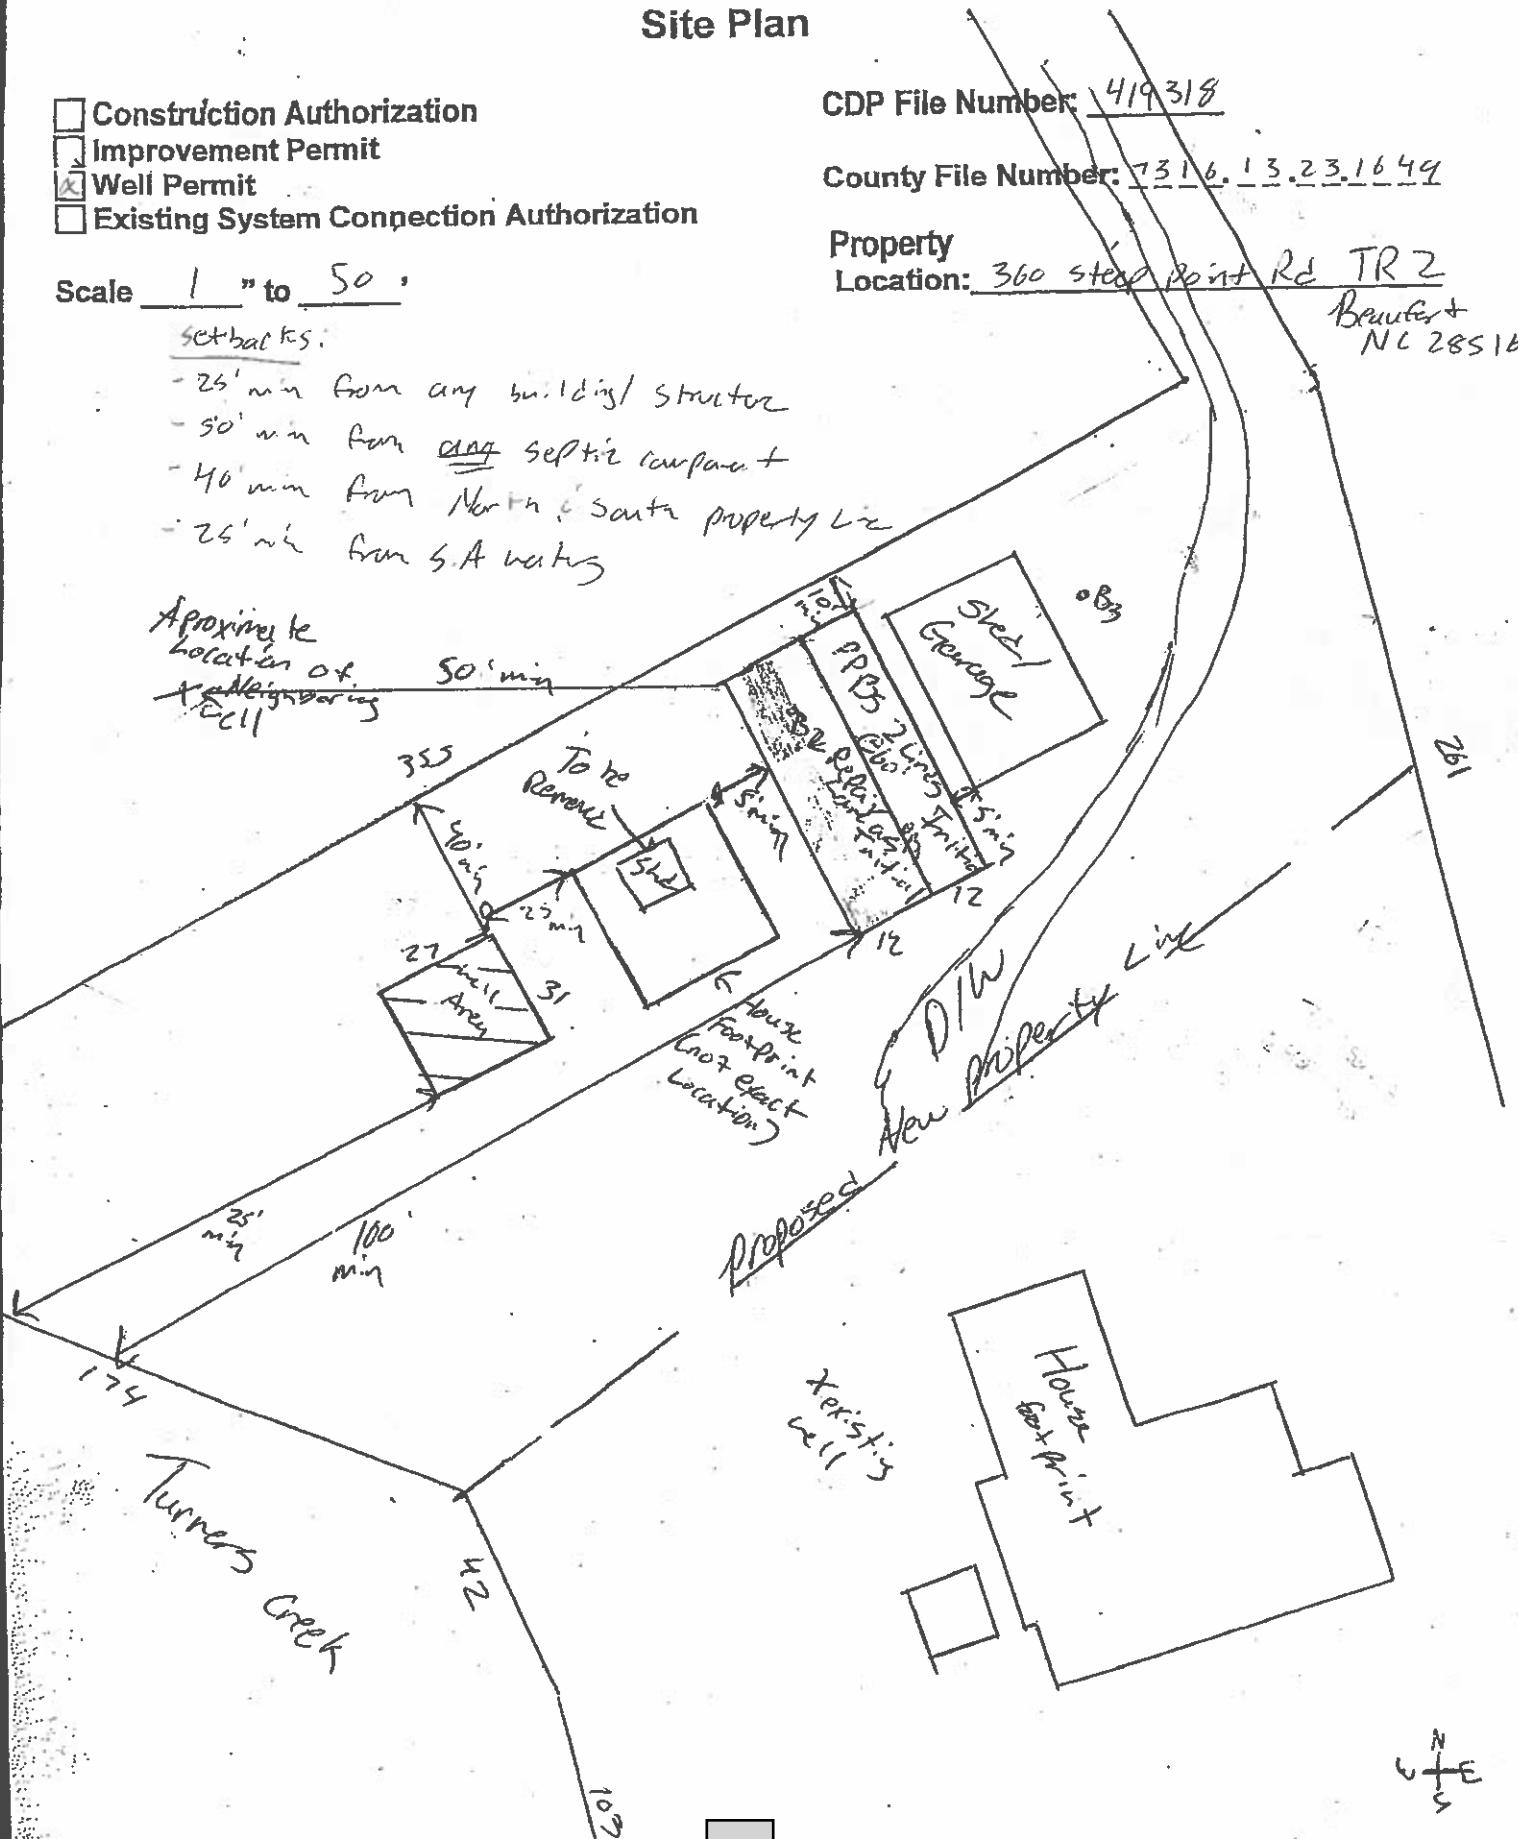 Site Plan
Construction Authorization
Improvement Permit
Well Permit
Existing System Connection Authorization
CDP File Number: 419318
County File Number: 7316.13.23.1649
Property
Location: 360 steep Point Rd TR 2
Beaufort
NC 28516
Scale 1 " to 50 '
setbacks:
- 25' min from any building/ structure
- 50' min from any septic component
- 40' min from North & South property Line
- 25' min from S.A waters
Aproximate
Location of
Neighboring
well
50' min
355
To be
Removed
Shed
40' min
25' min
5' min
10' min
PPBS 2 Lines
@60'
Initial
B2
Repair
Same as
Initial
Shed/
Garage
B3
5' min
12
12
27
31
Well
Area
House
Footprint
(not exact
Location)
D/W
Proposed New Property Line
261
25'
min
100'
min
174
Turners Creek
42
103
x existing
well
House
footprint
N
W E
S